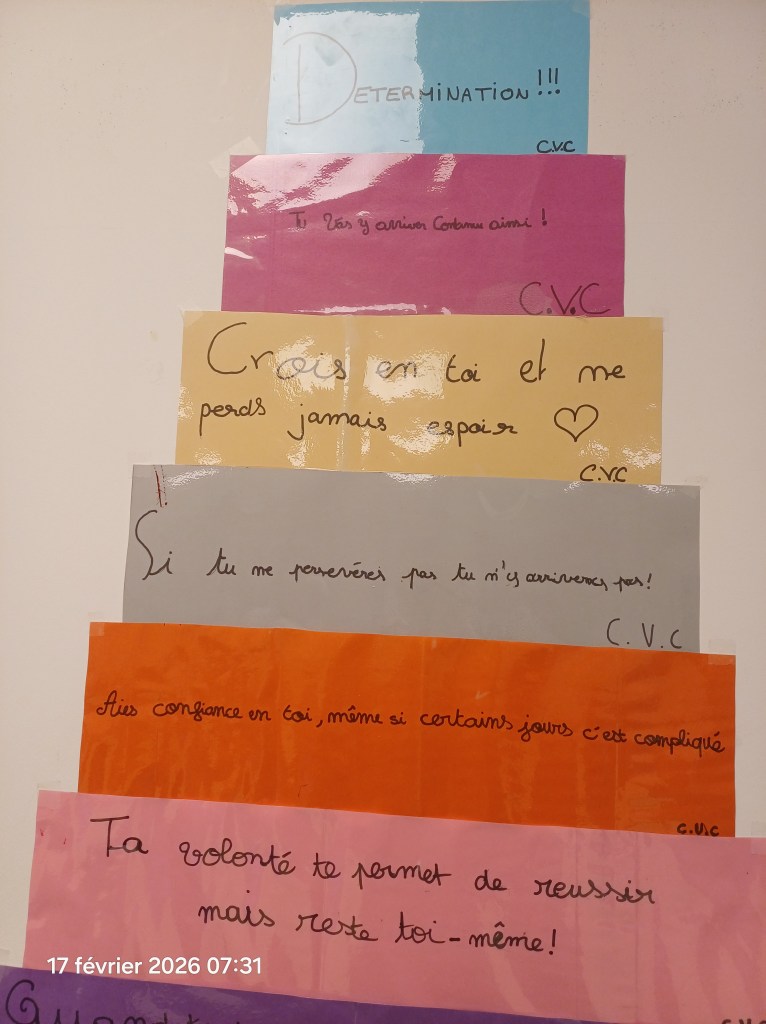 DETERMINATION!!!
C.V.C
Tu vas y arriver Continue ainsi !
C.V.C
Crois en toi et ne
perds jamais espoir ♡
C.V.C
Si tu ne persevéres pas tu n'y arriveras pas!
C.V.C
Aies confiance en toi, même si certains jours c'est compliqué
C.V.C
Ta volonté te permet de reussir
mais reste toi-même!
17 février 2026 07:31
C.V.C